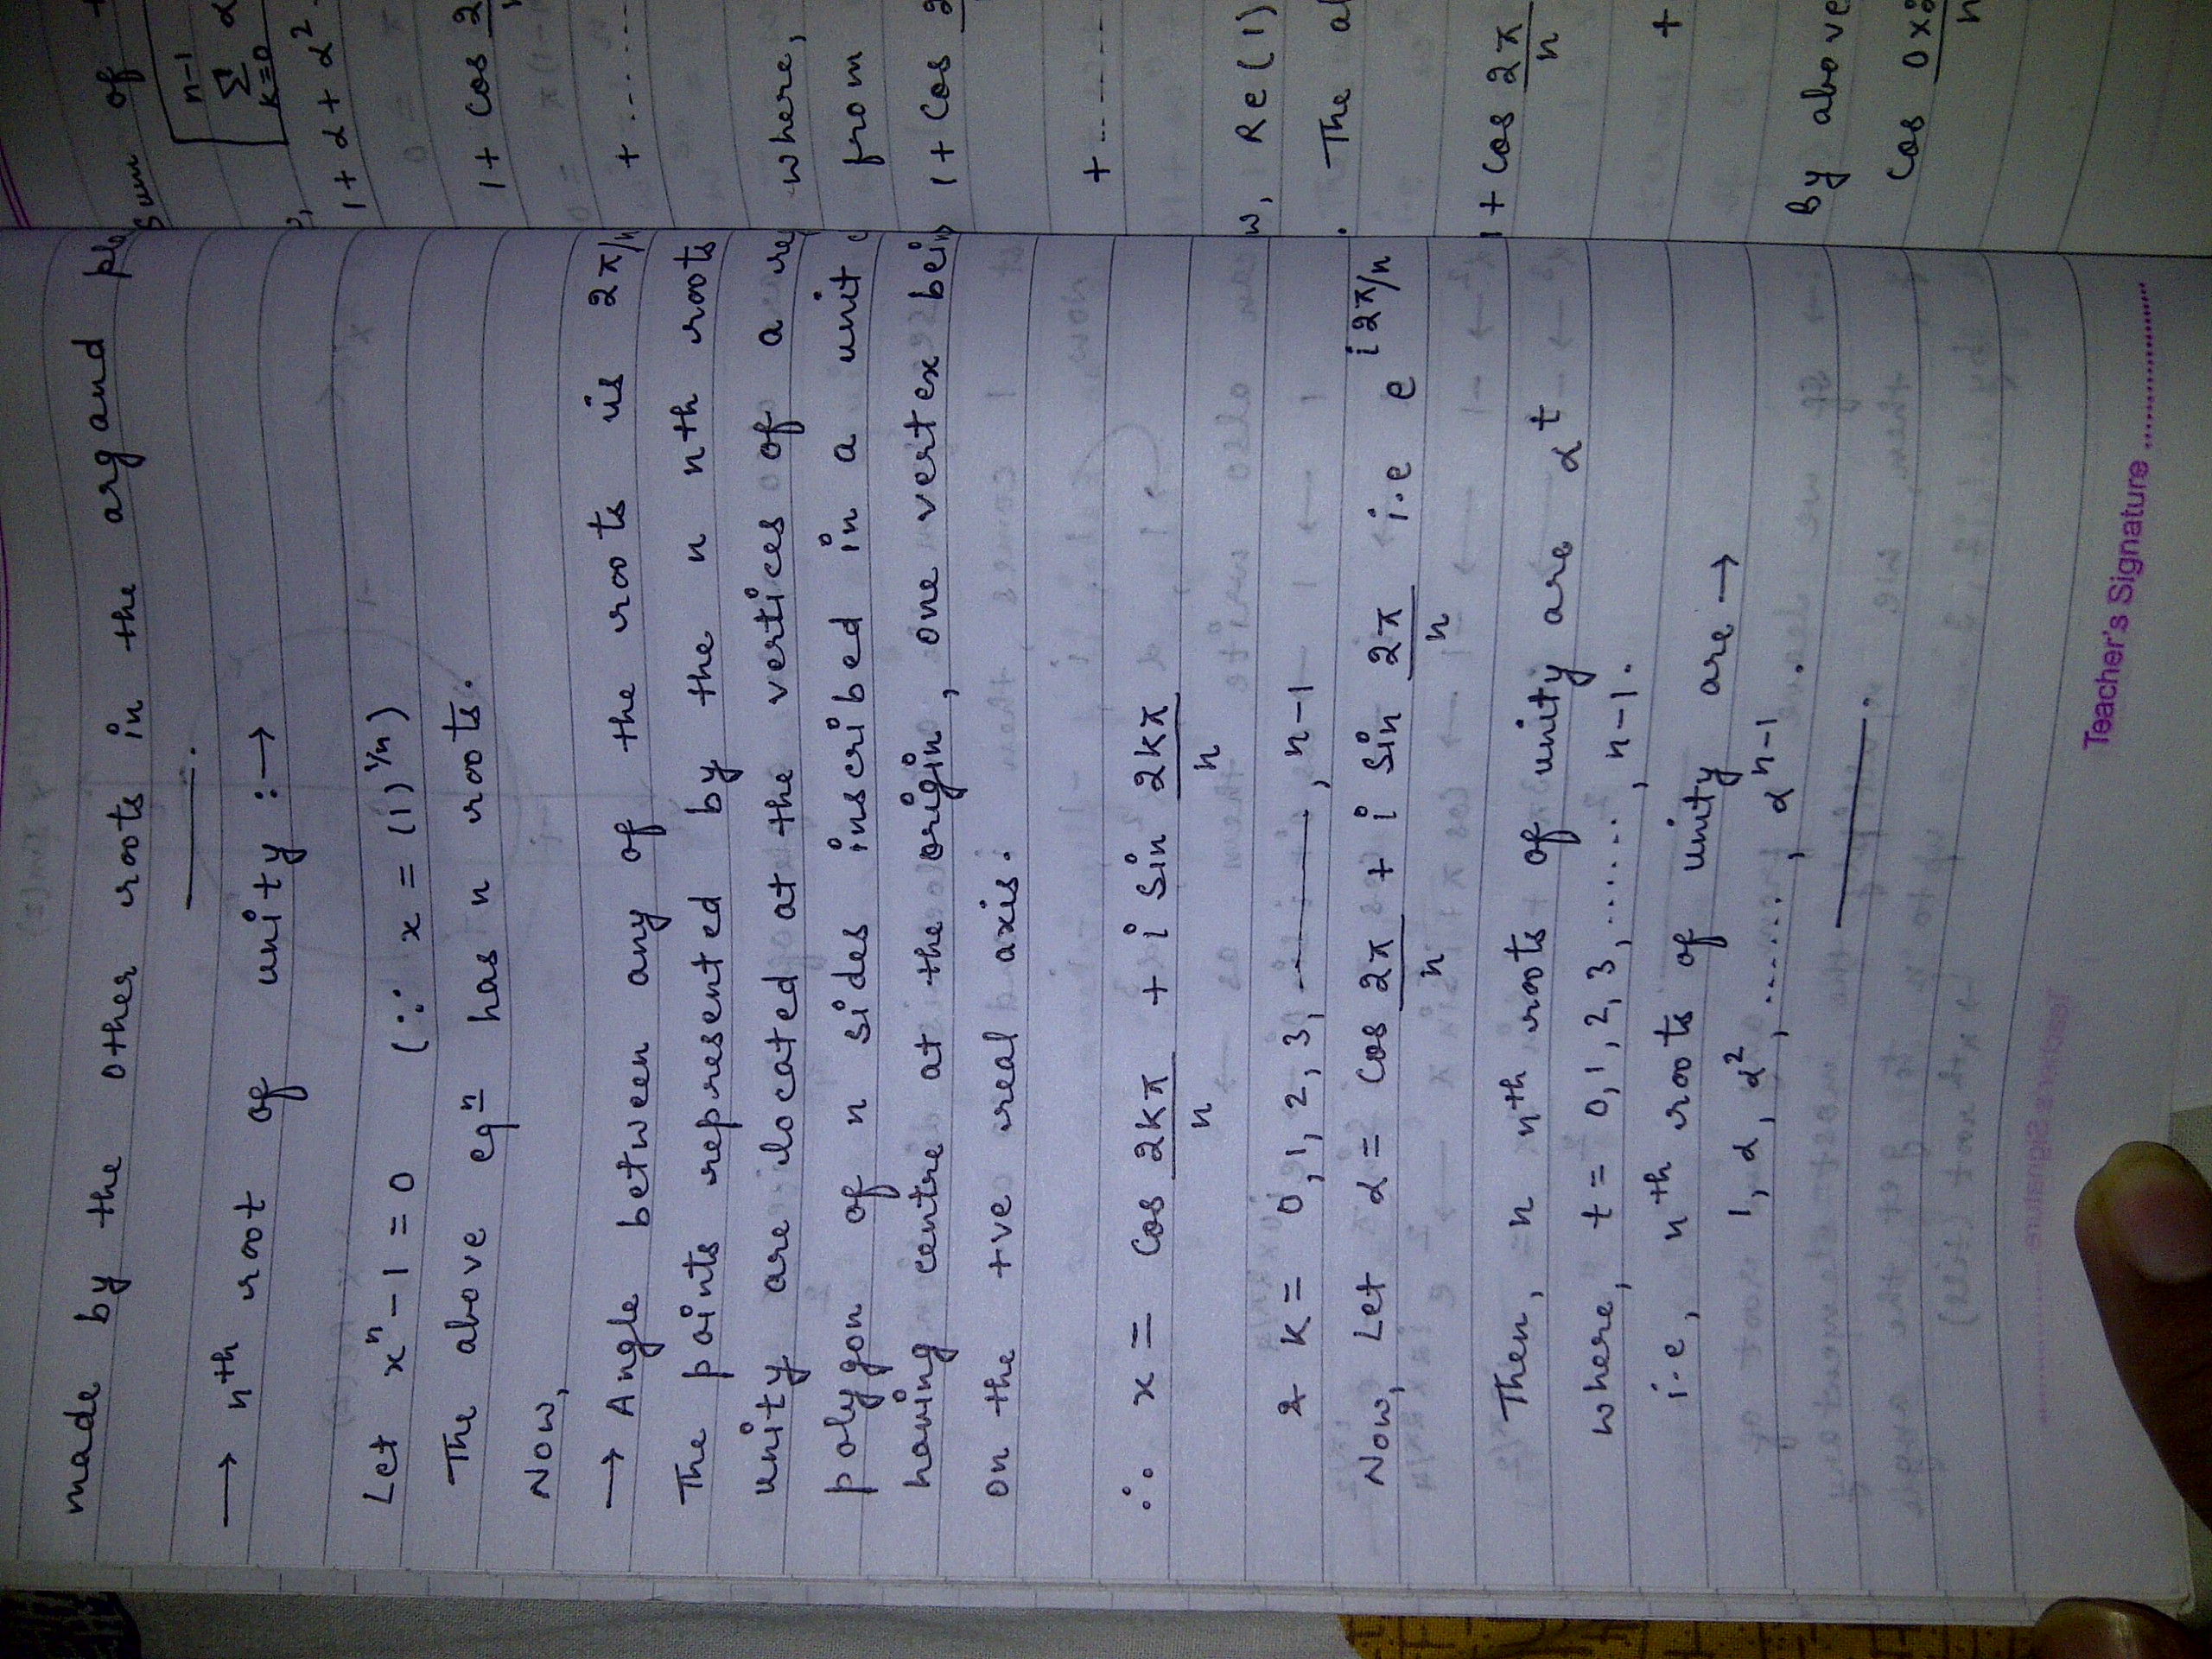 made by the other roots in the argand
→ nth root of unity :→
Let xⁿ - 1 = 0 (∵ x = (1)^1/n)
The above eqn has n roots.
Now,
→ Angle between any of the roots is 2π/n
The points represented by the n nth roots
unity are located at the vertices of a
polygon of n sides inscribed in a unit
having centre at the origin, one vertex
on the +ve real axis.
∴ x = cos 2kπ/n + i sin 2kπ/n
& k = 0, 1, 2, 3, ———, n-1
Now, Let α = cos 2π/n + i sin 2π/n i.e e^i2π/n
Then, n nth roots of unity are α^t
where, t = 0, 1, 2, 3, ......, n-1.
i.e, nth roots of unity are →
1, α, α², ......, αⁿ⁻¹.
Teacher's Signature ....................
Sum of
n-1
Σ α
k=0
1 + α + α²
1 + cos 2
+ ......
where,
from
1 + cos 2
+ ......
Re(1)
The
1 + cos 2π/n
+
By above
cos 0×2
n